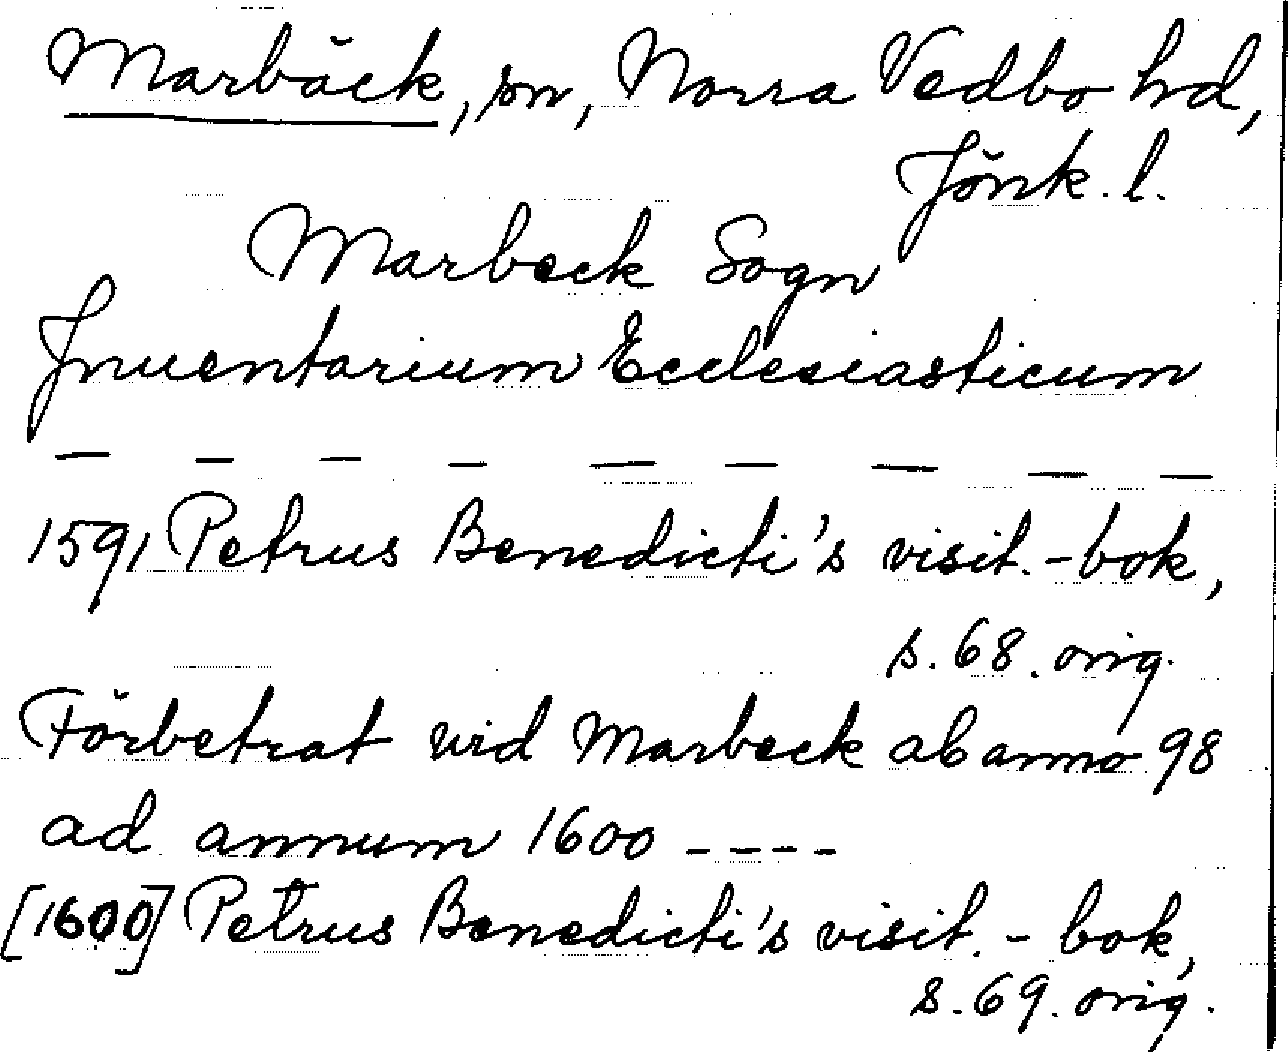 Marbäck, sn, Norra Vedbo hd,
Jönk. l.
Marbeck Sogn
Jnuentarium Ecclesiasticum
— — — — — — — — —
1591 Petrus Benedicti's visit.-bok,
s. 68. orig.
Förbetrat wid Marbeck ab anno 98
ad annum 1600 ----
[1600] Petrus Benedicti's visit.-bok,
s. 69. orig.